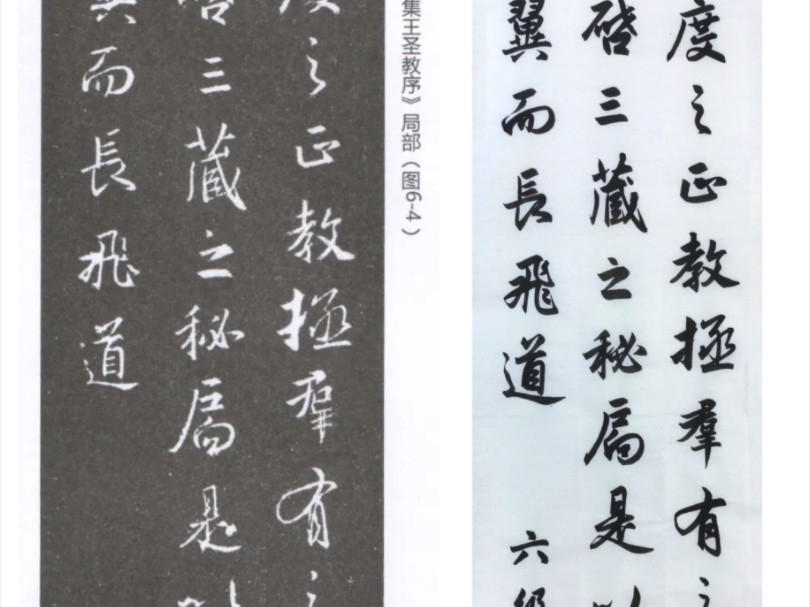 集王圣教序》局部（图6-4）
度之正教拯羣有
啓三藏之秘扃是
翼而長飛道
度之正教拯羣有
啓三藏之秘扃是
翼而長飛道
六级